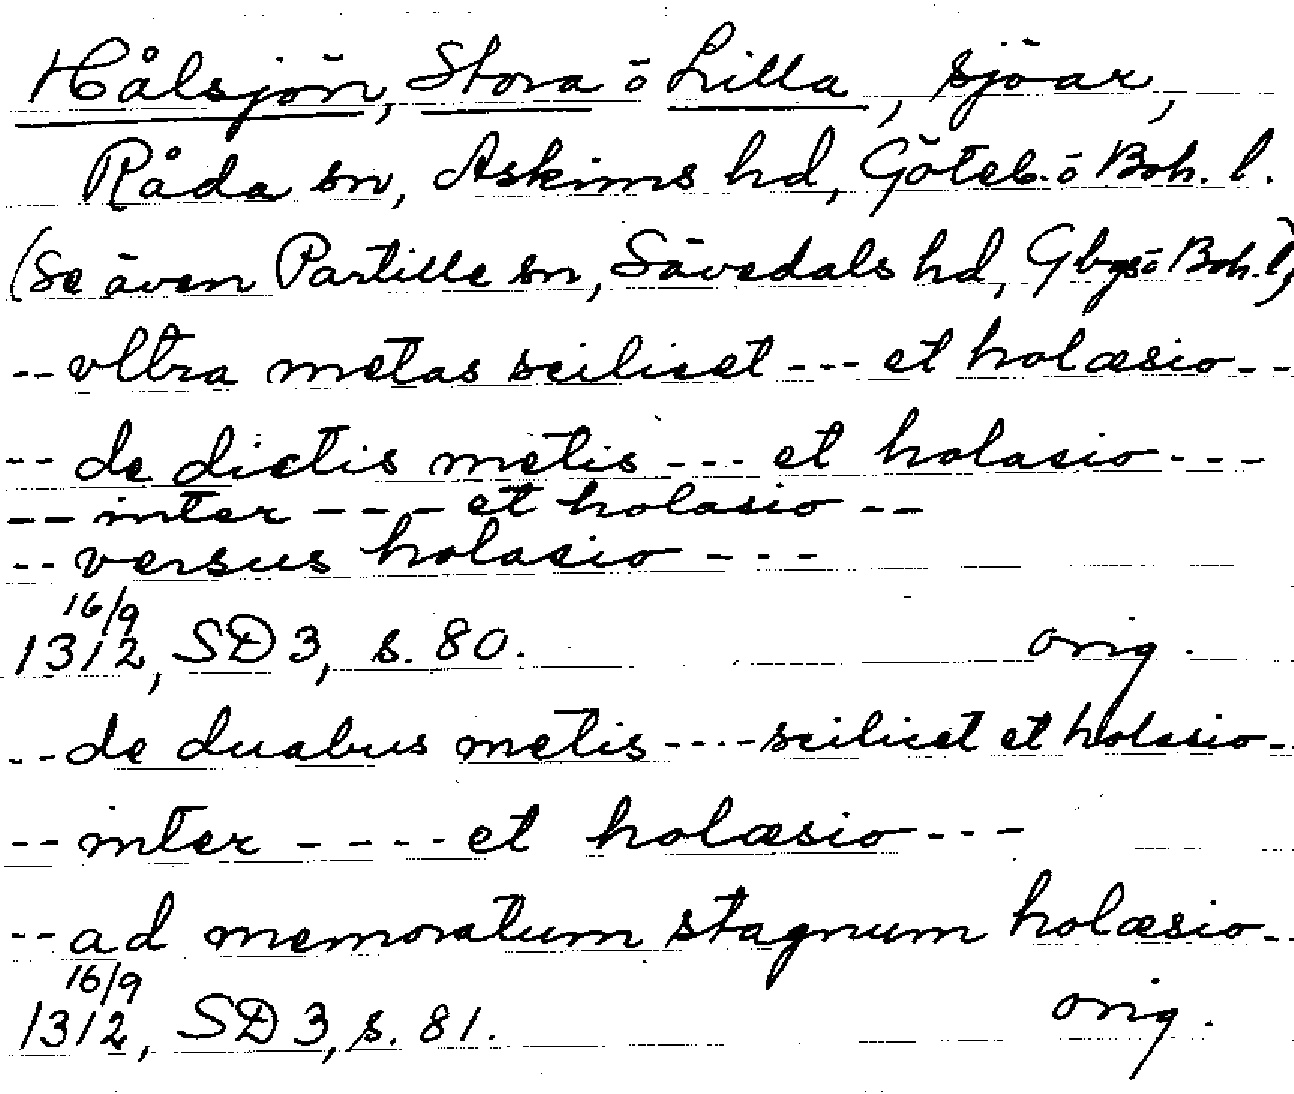 Hålsjön, Stora o Lilla, sjöar,
Råda sn, Askims hd, Göteb. o Boh. l.
(Se även Partille sn, Sävedals hd, Gbgs o Boh. l)
-- vltra metas scilicet --- et holæsio --
-- de dictis metis --- et holasio ---
-- inter --- et holasio --
-- versus holasio ---
16/9
1312, SD 3, s. 80. orig.
-- de duabus metis ---- scilicet et holasio --
-- inter ---- et holæsio ---
-- ad memoratum stagnum holæsio --
16/9
1312, SD 3, s. 81. orig.